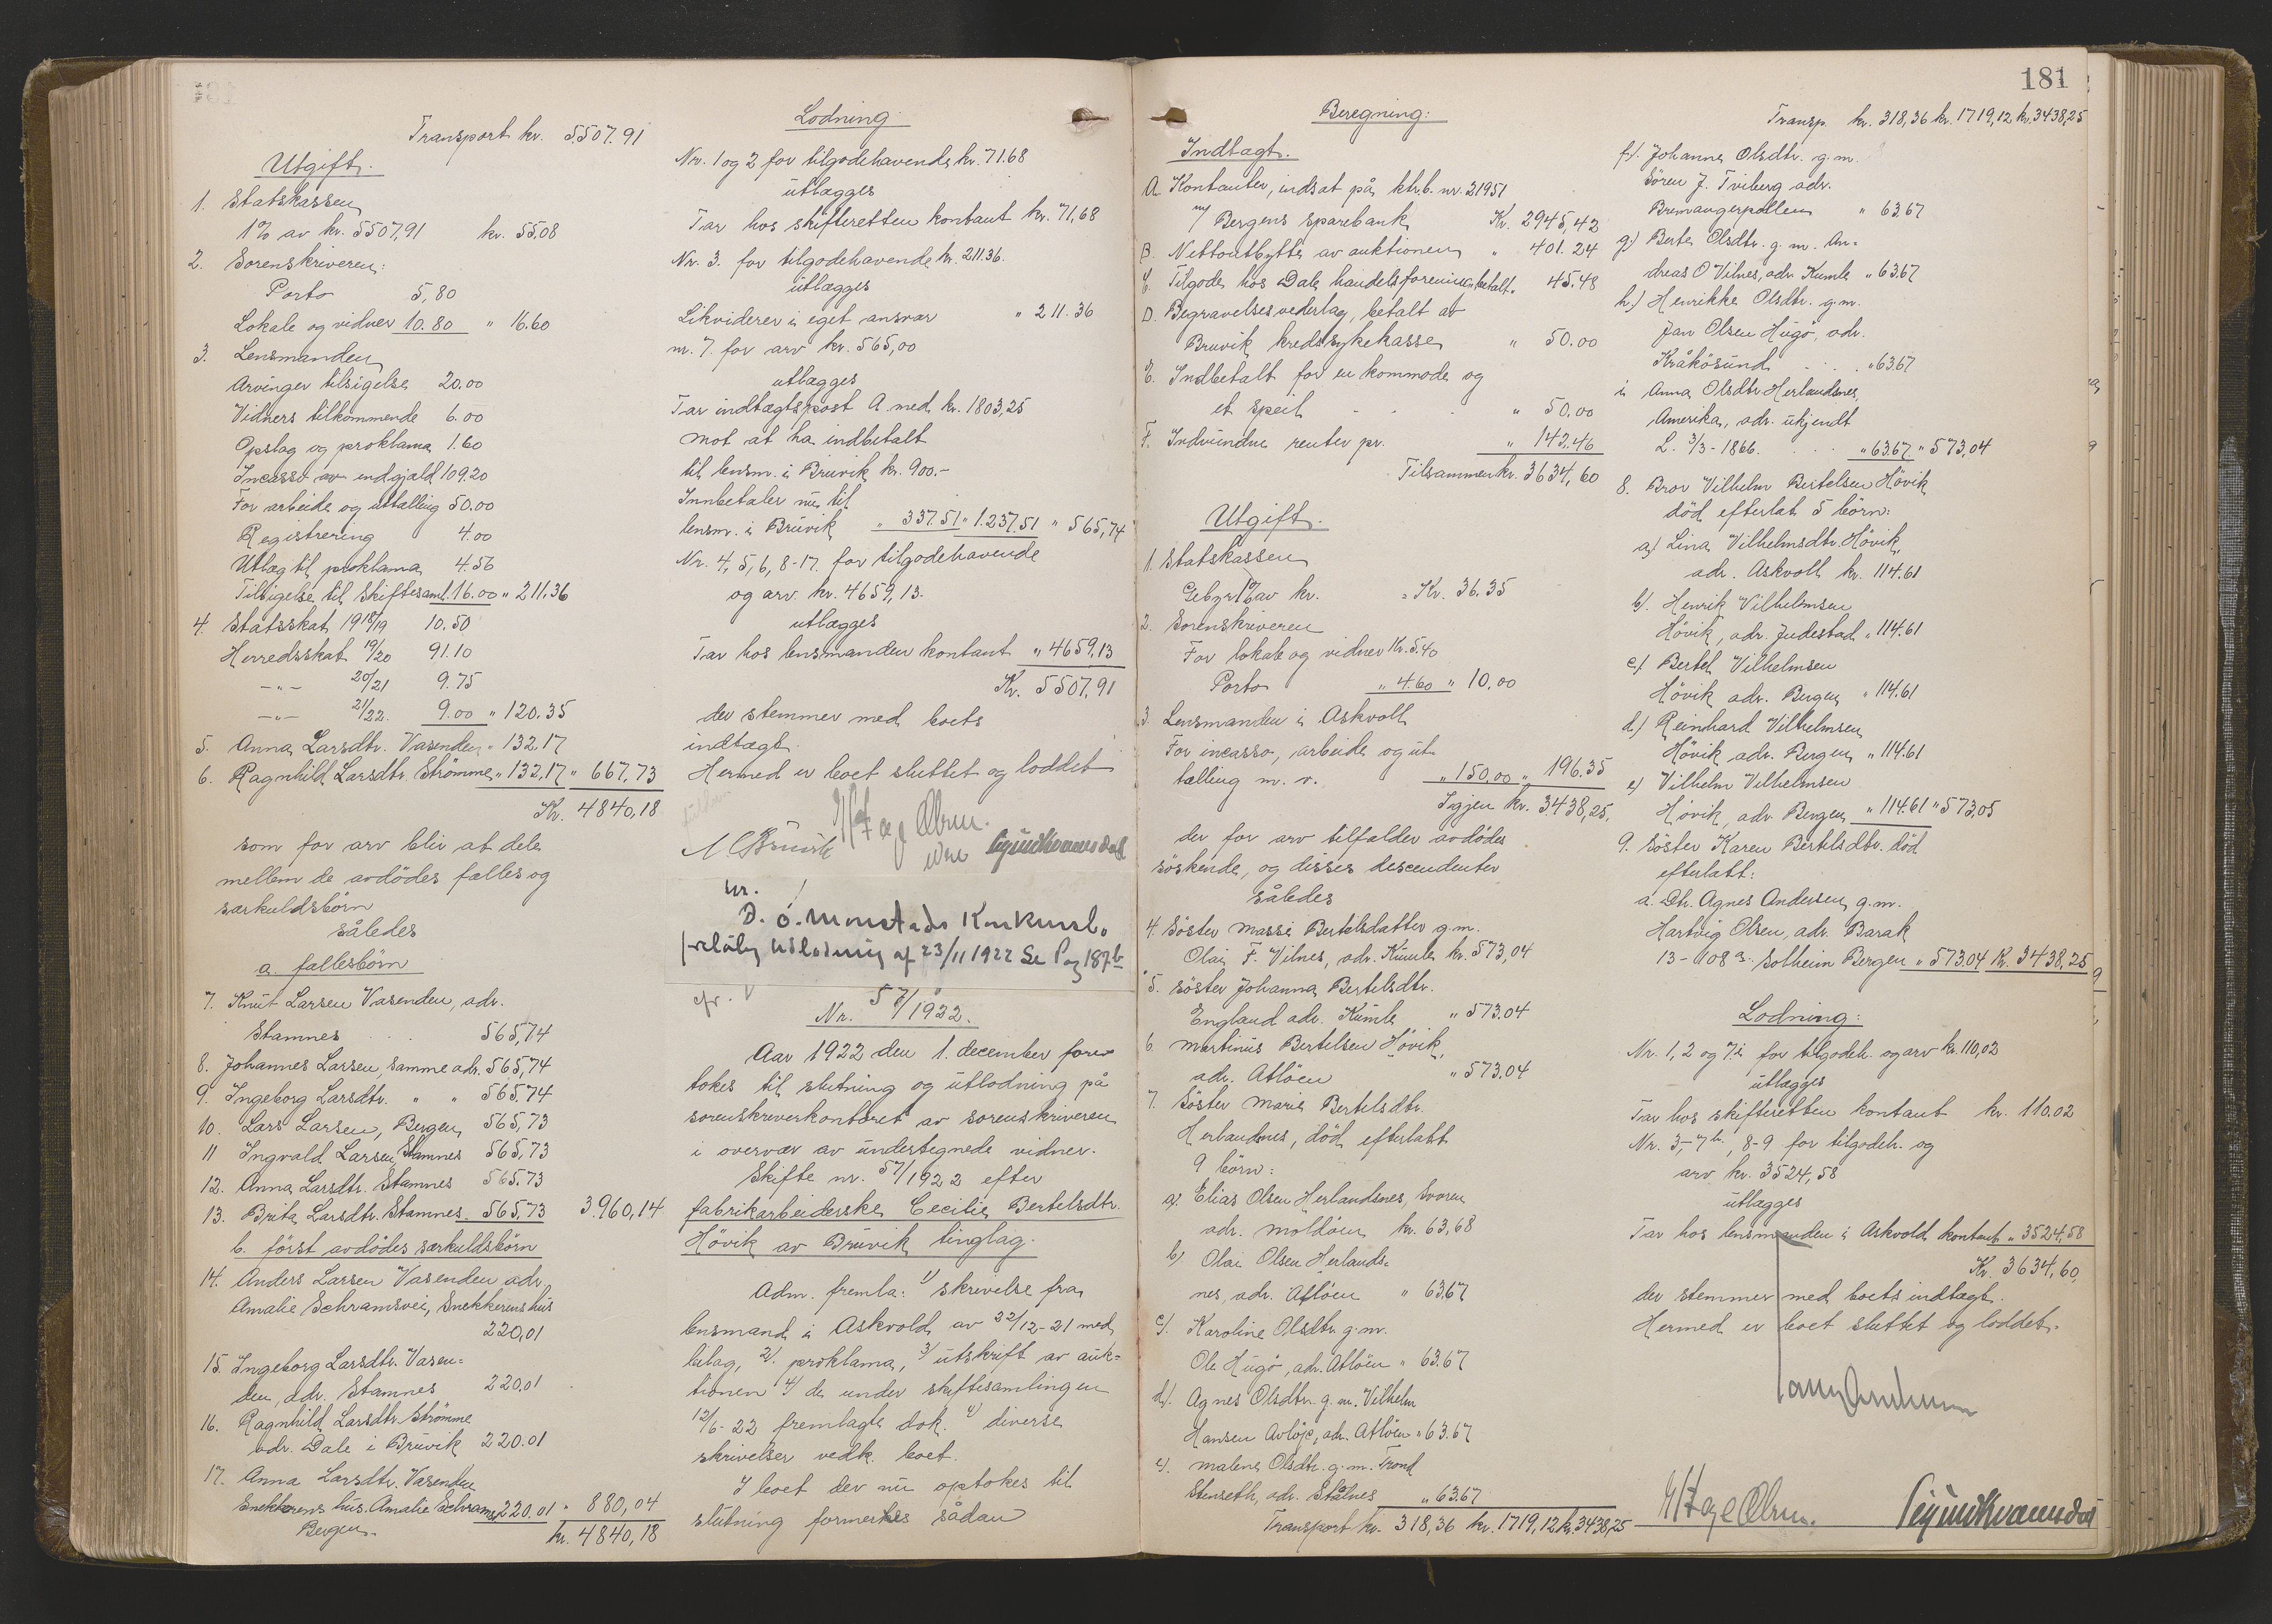 Transport kr. 5507.91
Utgift.
1. Statskassen
1% av kr. 5507,91 kr. 55.08
2. Sorenskriveren:
Porto 5,80
Lokale og vidner 10.80 " 16.60
3. Lensmanden
Arvinger tilsigelse 20.00
Vidners tilkommende 6.00
Opslag og proklama 1.60
Incasso av endgjald 109.20
For arbeide og uttælling 50.00
Registrering 4.00
Utlæg til proklama 4.56
Tilsigelse til skiftesaml. 16.00 " 211.36
4. Statsskat 1918/19 10.50
Herredsskat 19/20 91.10
-"- 20/21 9.75
-"- 21/22. 9.00 " 120.35
5. Anna Larsdtr. Vasenden " 132.17
6. Ragnhild Larsdtr. Strömme " 132,17 " 667,73
Kr. 4840,18
som for arv blir at dele
mellem de avdödes fælles og
særkuldsbörn
således
a. fællesbörn
7. Knut Larsen Vasenden, adr.
Stamnes 565,74
8. Johannes Larsen, samme adr. 565,74
9. Ingeborg Larsdtr. " " 565.74
10. Lars Larsen, Bergen 565,73
11 Ingvald Larsen Stamnes 565,73
12. Anna Larsdtr. Stamnes 565.73
13. Brita Larsdtr. Stamnes 565,73 3960,14
b. först avdödes særkuldsbörn
14. Anders Larsen Vasenden adr.
Amalie Schramsvei, Snekkerens hus
220,01
15. Ingeborg Larsdtr. Vasen=
den, adr. Stamnes 220,01
16. Ragnhild Larsdtr. Strömme
adr. Dale i Bruvik 220.01
17. Anna Larsdtr. Vasenden
Snekkerens hus. Amalie Schrams 220.01 " 880,04
Bergen. kr. 4840,18
Lodning
Nr. 1 og 2 for tilgodehavende kr. 71.68
utlægges
Tar hos skifteretten kontant kr. 71,68
Nr. 3. for tilgodehavende kr. 211.36.
utlægges
Likviderer i eget ansvar " 211.36
nr. 7. for arv kr. 565,00
utlægges
Tar indtægtspost A med kr. 1803,25
mot at ha indbetalt
til lensm. i Bruvik kr. 900.-
Innbetaler nu til
lensm. i Bruvik " 337.51 " 1.237.51 " 565,74
Nr. 4, 5, 6, 8-17. for tilgodehavende
og arv kr. 4659,13.
utlægges
Tar hos lensmanden kontant " 4659,13
Kr. 5507,91
der stemmer med boets
indtægt.
Hermed er boet sluttet og loddet
D. O. Monstads Konkursb.
Utlodning af 23/11 1922 Se Pag 187b
Nr. 57/1922.
Aar 1922 den 1. december fore-
tokes til slutning og utlodning på
sorenskriverkontoret av sorenskriveren
i overvær av undertegnede vidner.
Skifte nr. 57/1922 efter
fabrikarbeiderske Cecilie Bertelsdtr.
Hövik av Bruvik tinglag.
Adm. fremla: 1/ skrivelse fra
lensmand i Askvold av 22/12-21 med
bilag, 2/. proklama, 3/ utskrift av auk=
tionen 4/ de under skiftesamlingen
12/6-22 fremlagte dok. 4/ diverse
skrivelser vedk. boet.
I boet der nu optokes til
slutning formerkes sådan
181
Beregning:
Indtægt.
A Kontanter, indsat på ktr.b. nr. 21951
m/ Bergens sparebank Kr. 2945,42
B. Nettoutbytte av auktionen " 401.24
C. Tilgode hos Dale handelsforening betalt " 45.48
D. Begravelsesvederlag, betalt av
Bruvik kredssykekasse " 50.00
E. Indbetalt for en kommode og
et speil " 50,00
F. Indvundne renter pr. " 142.46
Tilsammen kr. 3634,60
Utgift.
1. Statskassen
Gebyr 1% av kr. = Kr. 36.35
2. Sorenskriveren
For lokale og vidner Kr. 5.40
Porto " 4.60 " 10,00
3. Lensmanden i Askvoll
For incasso, arbeide og ut-
tælling m. v. " 150,00 " 196.35
Igjen kr. 3438,25.
der for arv tilfalder avdödes
söskende, og disses descendenter
således
4. Söster Massi Bertelsdatter g.m.
Olai F. Vilnes, adr. Kumle kr. 573,04
5. söster Johanna Bertelsdtr.
England adr. Kumle " 573.04
6. Martinus Bertelsen Hövik,
adr. Atlöen " 573.04
7. Söster Marie Bertelsdtr.
Herlandnes, död efterlatt
9 börn:
a/. Elias Olsen Herlandsnes, Svoren
adr. Moldöen kr. 63,68
b/ Olai Olsen Herlands-
nes, adr. Atlöen " 63.67
c/. Karoline Olsdtr. g.m.
Ole Hugö, adr. Atlöen " 63.67
d/. Agnes Olsdtr. g.m. Vilhelm
Hansen Avlöje, adr. Atlöen " 63.67
e/. Malene Olsdtr. g.m. Trond
Stenseth, adr. Stålnes " 63.67
Transport kr. 318,36 kr. 1719,12 kr. 3438,25
Transp. kr. 318,36 kr. 1719,12 kr. 3438,25
f/. Johanne Olsdtr. g.m.
Sören J. Tviberg adr.
Bremangerpollen " 63.67
g/) Berte Olsdtr. g.m. An=
dreas O Vilnes, adr. Kumle " 63.67
h/) Henrikke Olsdtr. g.m.
Jan Olsen Hugö, adr.
Kråkösund " 63.67
i. Anna Olsdtr. Herlandsnes,
Amerika, adr. ukjendt
L. 3/3-1866. " 63.67 " 573,04
8. Bror Vilhelm Bertelsen Hövik
död efterlat 5 börn:
a/ Lina Vilhelmsdtr. Hövik,
adr. Askvoll kr. 114.61
b/. Henrik Vilhelmsen
Hövik, adr. Judestad " 114.61
c/ Bertel Vilhelmsen
Hövik adr. Bergen " 114.61
d./ Reinhard Vilhelmsen
Hövik adr. Bergen " 114.61
e/ Vilhelm Vilhelmsen
Hövik, adr. Bergen " 114.61 " 573,05
9. Söster Karen Bertelsdtr. död
efterlatt:
a. Dtr. Agnes Andersen g.m.
Hartvig Olsen, adr. Barak
13-108 a. Solheim Bergen " 573.04 Kr. 3438,25
Lodning:
Nr. 1, 2 og 7i for tilgodeh. og arv kr. 110,02
utlægges
Tar hos skifteretten kontant kr. 110.02
Nr. 3,-7h, 8-9 for tilgodeh. og
arv kr. 3524,58
utlægges
Tar hos lensmanden i Askvold kontant " 3524,58
Kr. 3634,60
der stemmer med boets indtægt.
Hermed er boet sluttet og loddet.